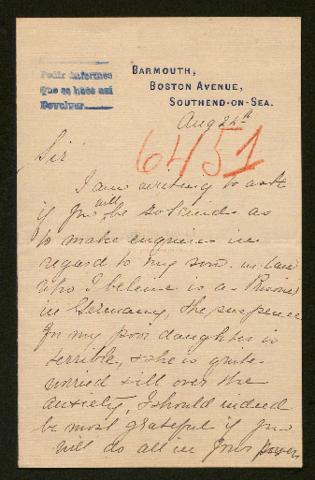 Pedir informes
Que se hace así
Devolver
BARMOUTH,
BOSTON AVENUE,
SOUTHEND-ON-SEA.
Aug 24th
6451
Sir
I am writing to ask
if you will be so kind as
to make enquiries in
regard to my son-in-law
who I believe is a Prisoner
in Germany, the suspense
for my poor daughter is
terrible, & she is quite
worried & ill over the
anxiety, I should indeed
be most grateful if you
will do all in your power